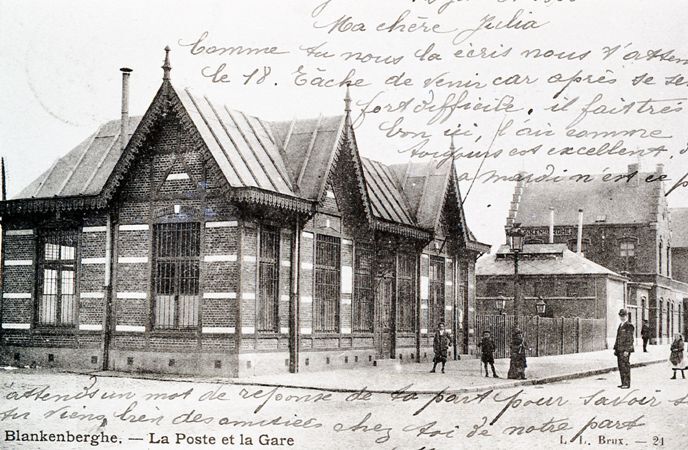 Ma chère Julia
Comme tu nous la écris nous t'atten
le 18. Tache de venir car après se se
fort difficile. il fait très
bon ici, l'air comme
toujours est excellent.
a mardi n'est ce p
attends un mot de reponse de ta part pour savoir s
tu viens bien des amitiées chez toi de notre part
Blankenberghe. — La Poste et la Gare
L. L. Brux. — 21